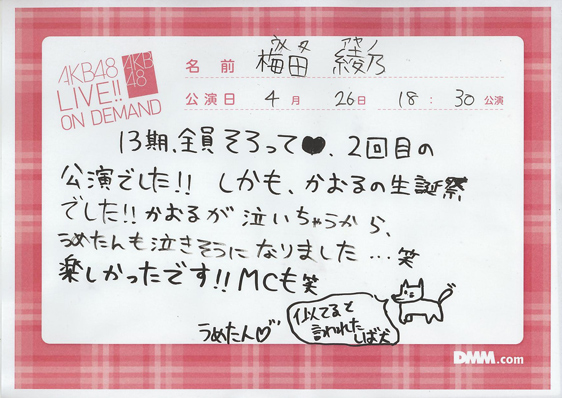 AKB48
LIVE!!
ON DEMAND
AKB
48
名前 梅田 綾乃
ウメタ アヤノ
公演日 4月 26日 18:30公演
13期、全員そろって♥、2回目の
公演でした!! しかも、かおるの生誕祭
でした!! かおるが泣いちゃうから、
うめたんも泣きそうになりました…笑
楽しかったです!! MCも笑
うめたん♡
似てると
言われた
しば犬
DMM.com